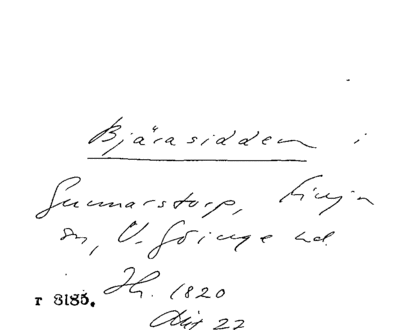 Bjärasiddem i
Gunnarstorp, Finja
sn, V. Göinge hd.
r 8185. Jh. 1820
Akt 22